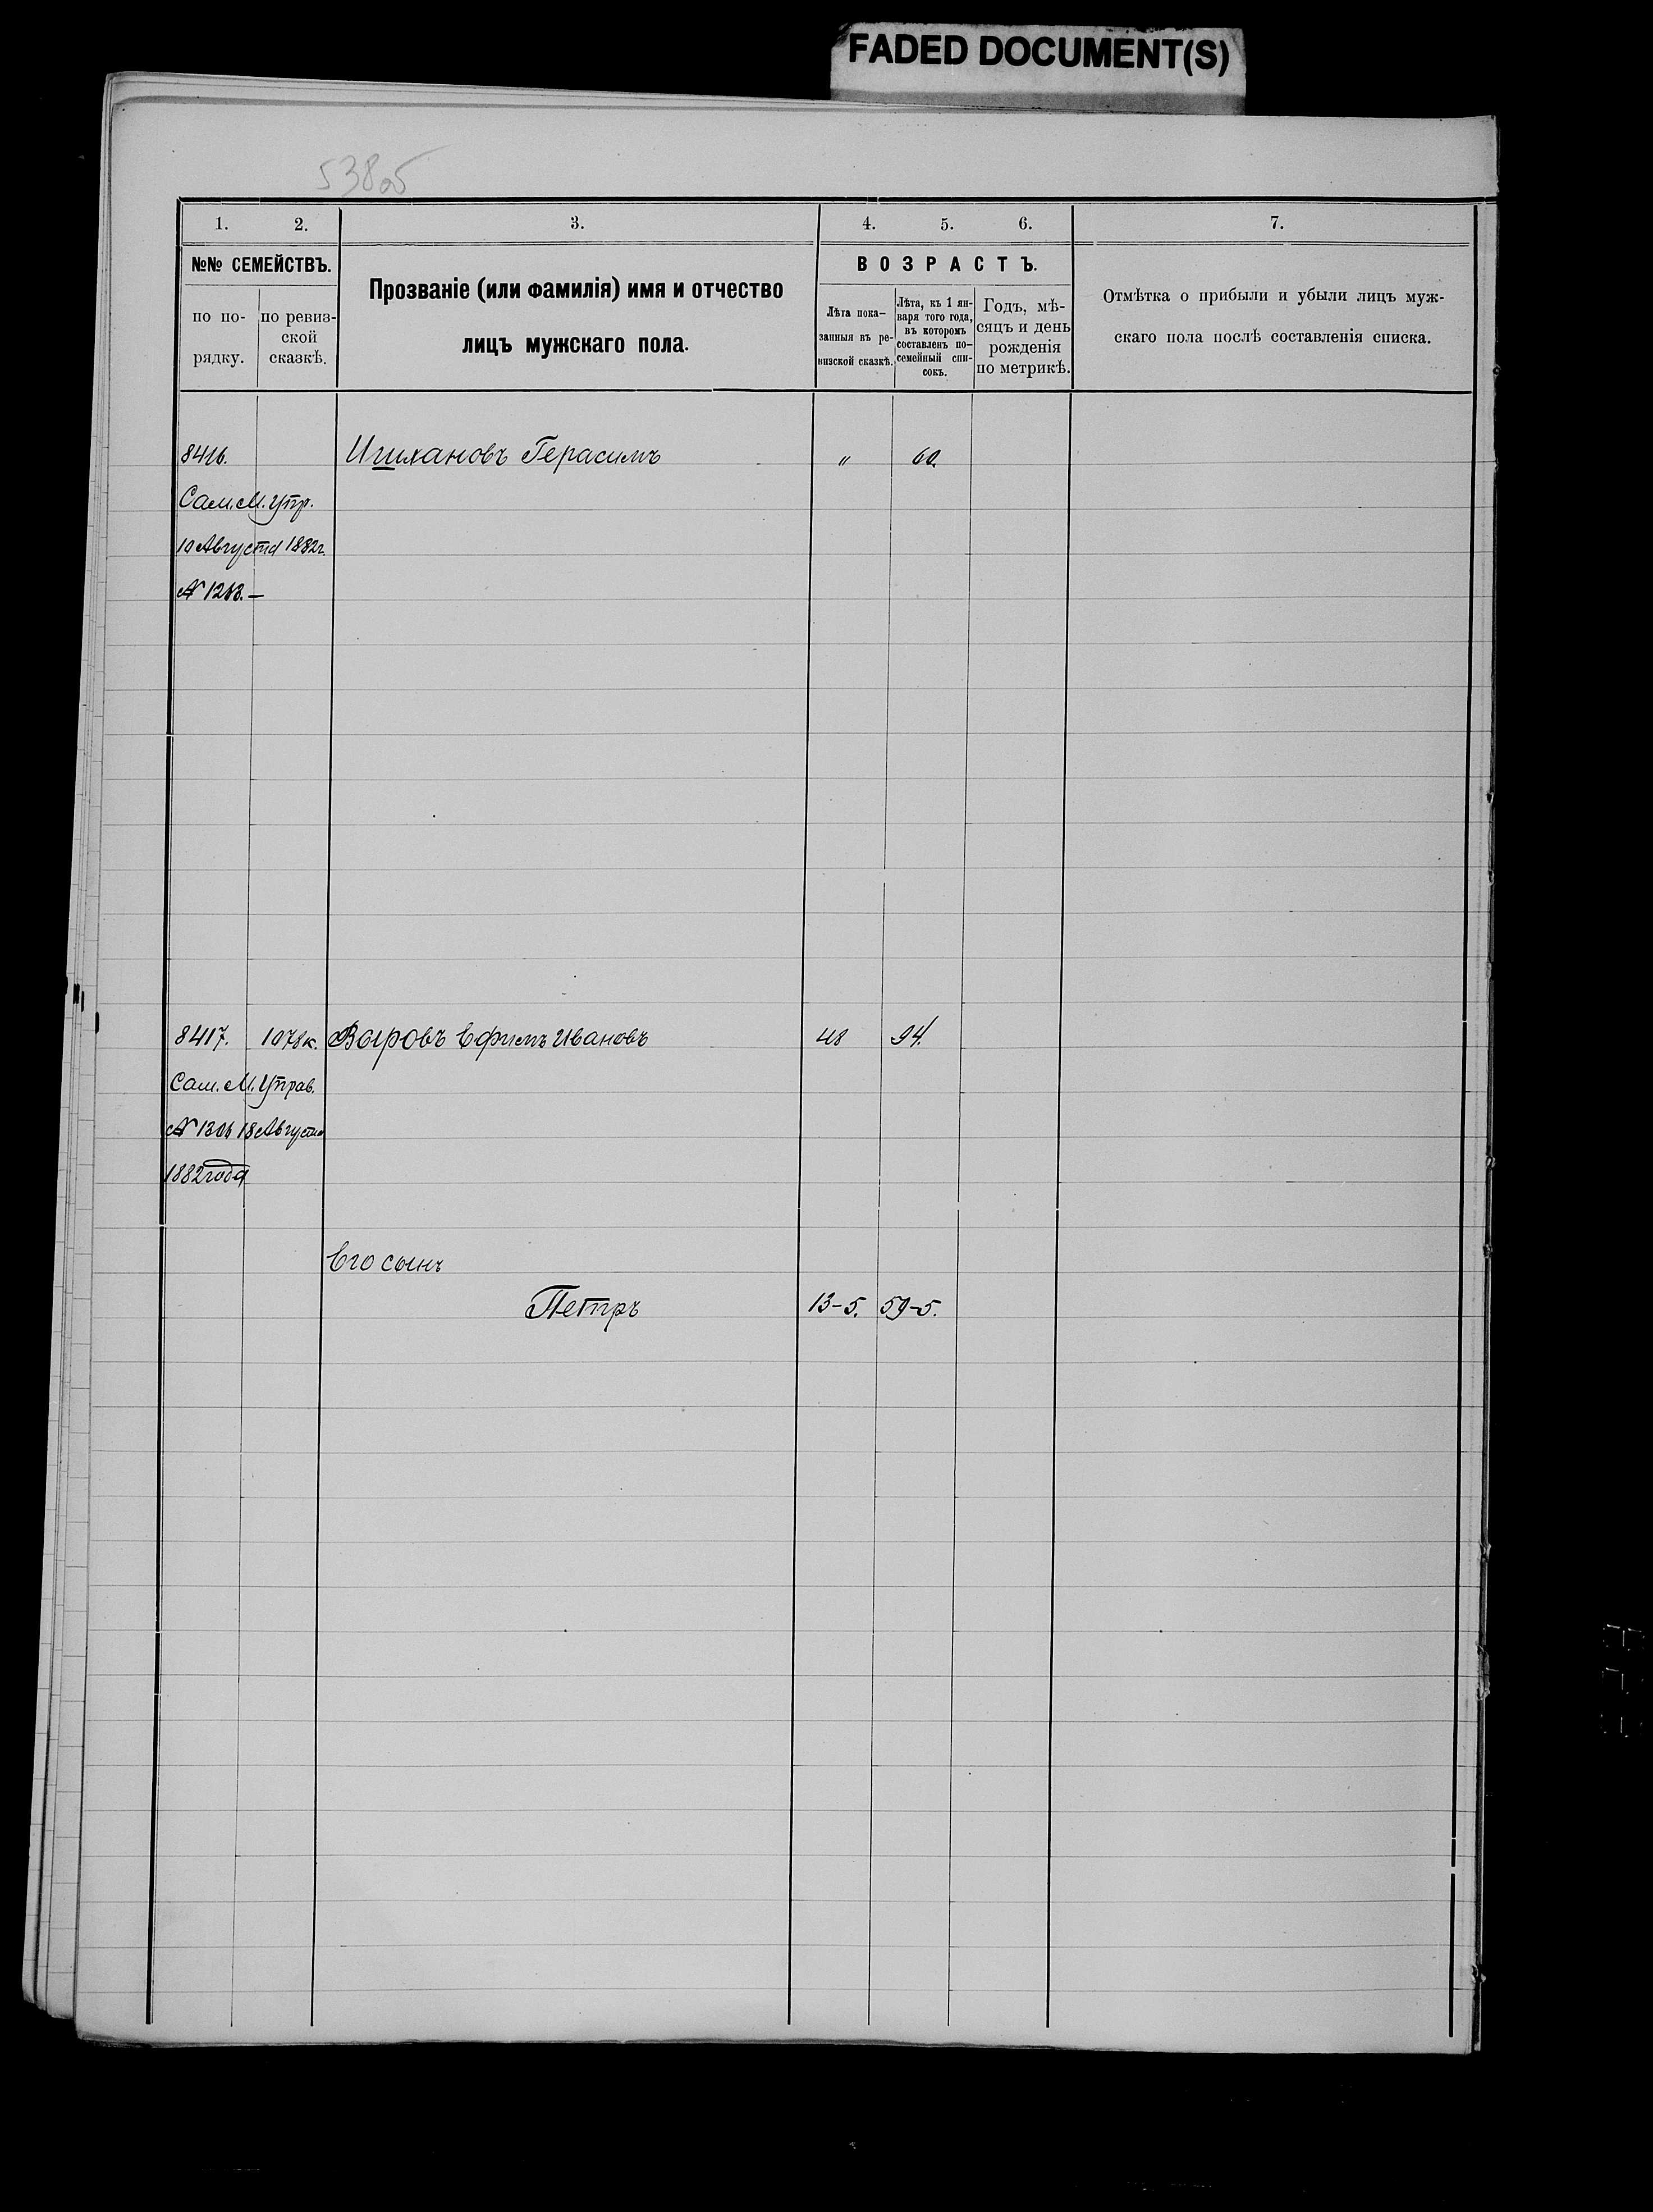 FADED DOCUMENT(S)
538об
1. 2. 3. 4. 5. 6. 7.
№№ СЕМЕЙСТВЪ.
по по-
рядку.
по ревиз-
ской
сказкѣ.
Прозваніе (или фамилія) имя и отчество
лицъ мужскаго пола.
ВОЗРАСТЪ.
Лѣта пока-
занныя въ ре-
визской сказкѣ.
Лѣта, къ 1 ян-
варя того года,
въ которомъ
составленъ по-
семейный спи-
сокъ.
Годъ, мѣ-
сяцъ и день
рожденія
по метрикѣ.
Отмѣтка о прибыли и убыли лицъ муж-
скаго пола послѣ составленія списка.
8416. Ишхановъ Герасимъ " 60.
Сам. М. Упр.
10 Августа 1882 г.
№
8417. 1078 к. Выровъ Ефимъ Ивановъ 48 94.
Сам. М. Управ.
№ 1306 18 Августа
1882 года
Его сынъ
Петръ 13-5. 59-5.